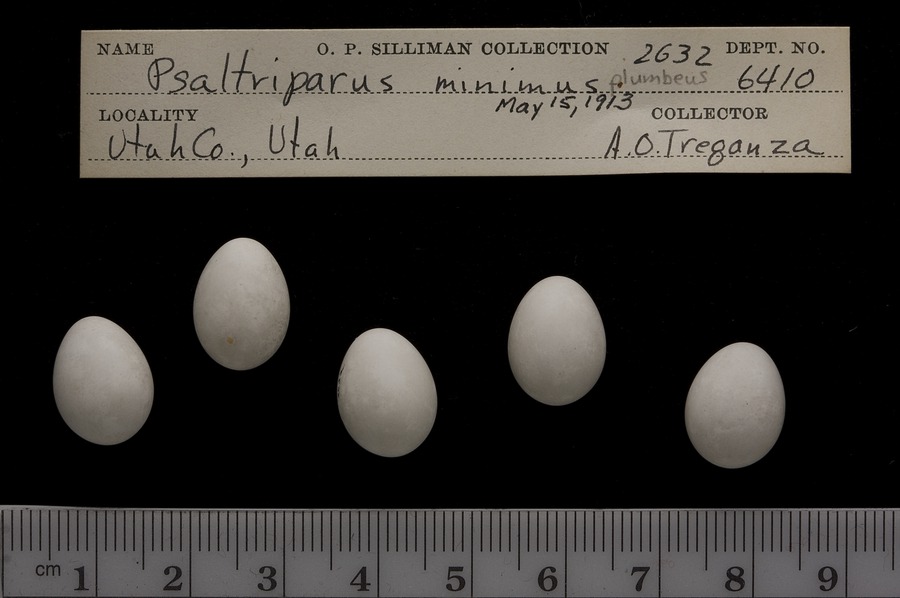 NAME O. P. SILLIMAN COLLECTION 2632 DEPT. NO.
Psaltriparus minimus plumbeus 6410
May 15, 1913
LOCALITY COLLECTOR
Utah Co., Utah A.O. Treganza
cm 1 2 3 4 5 6 7 8 9